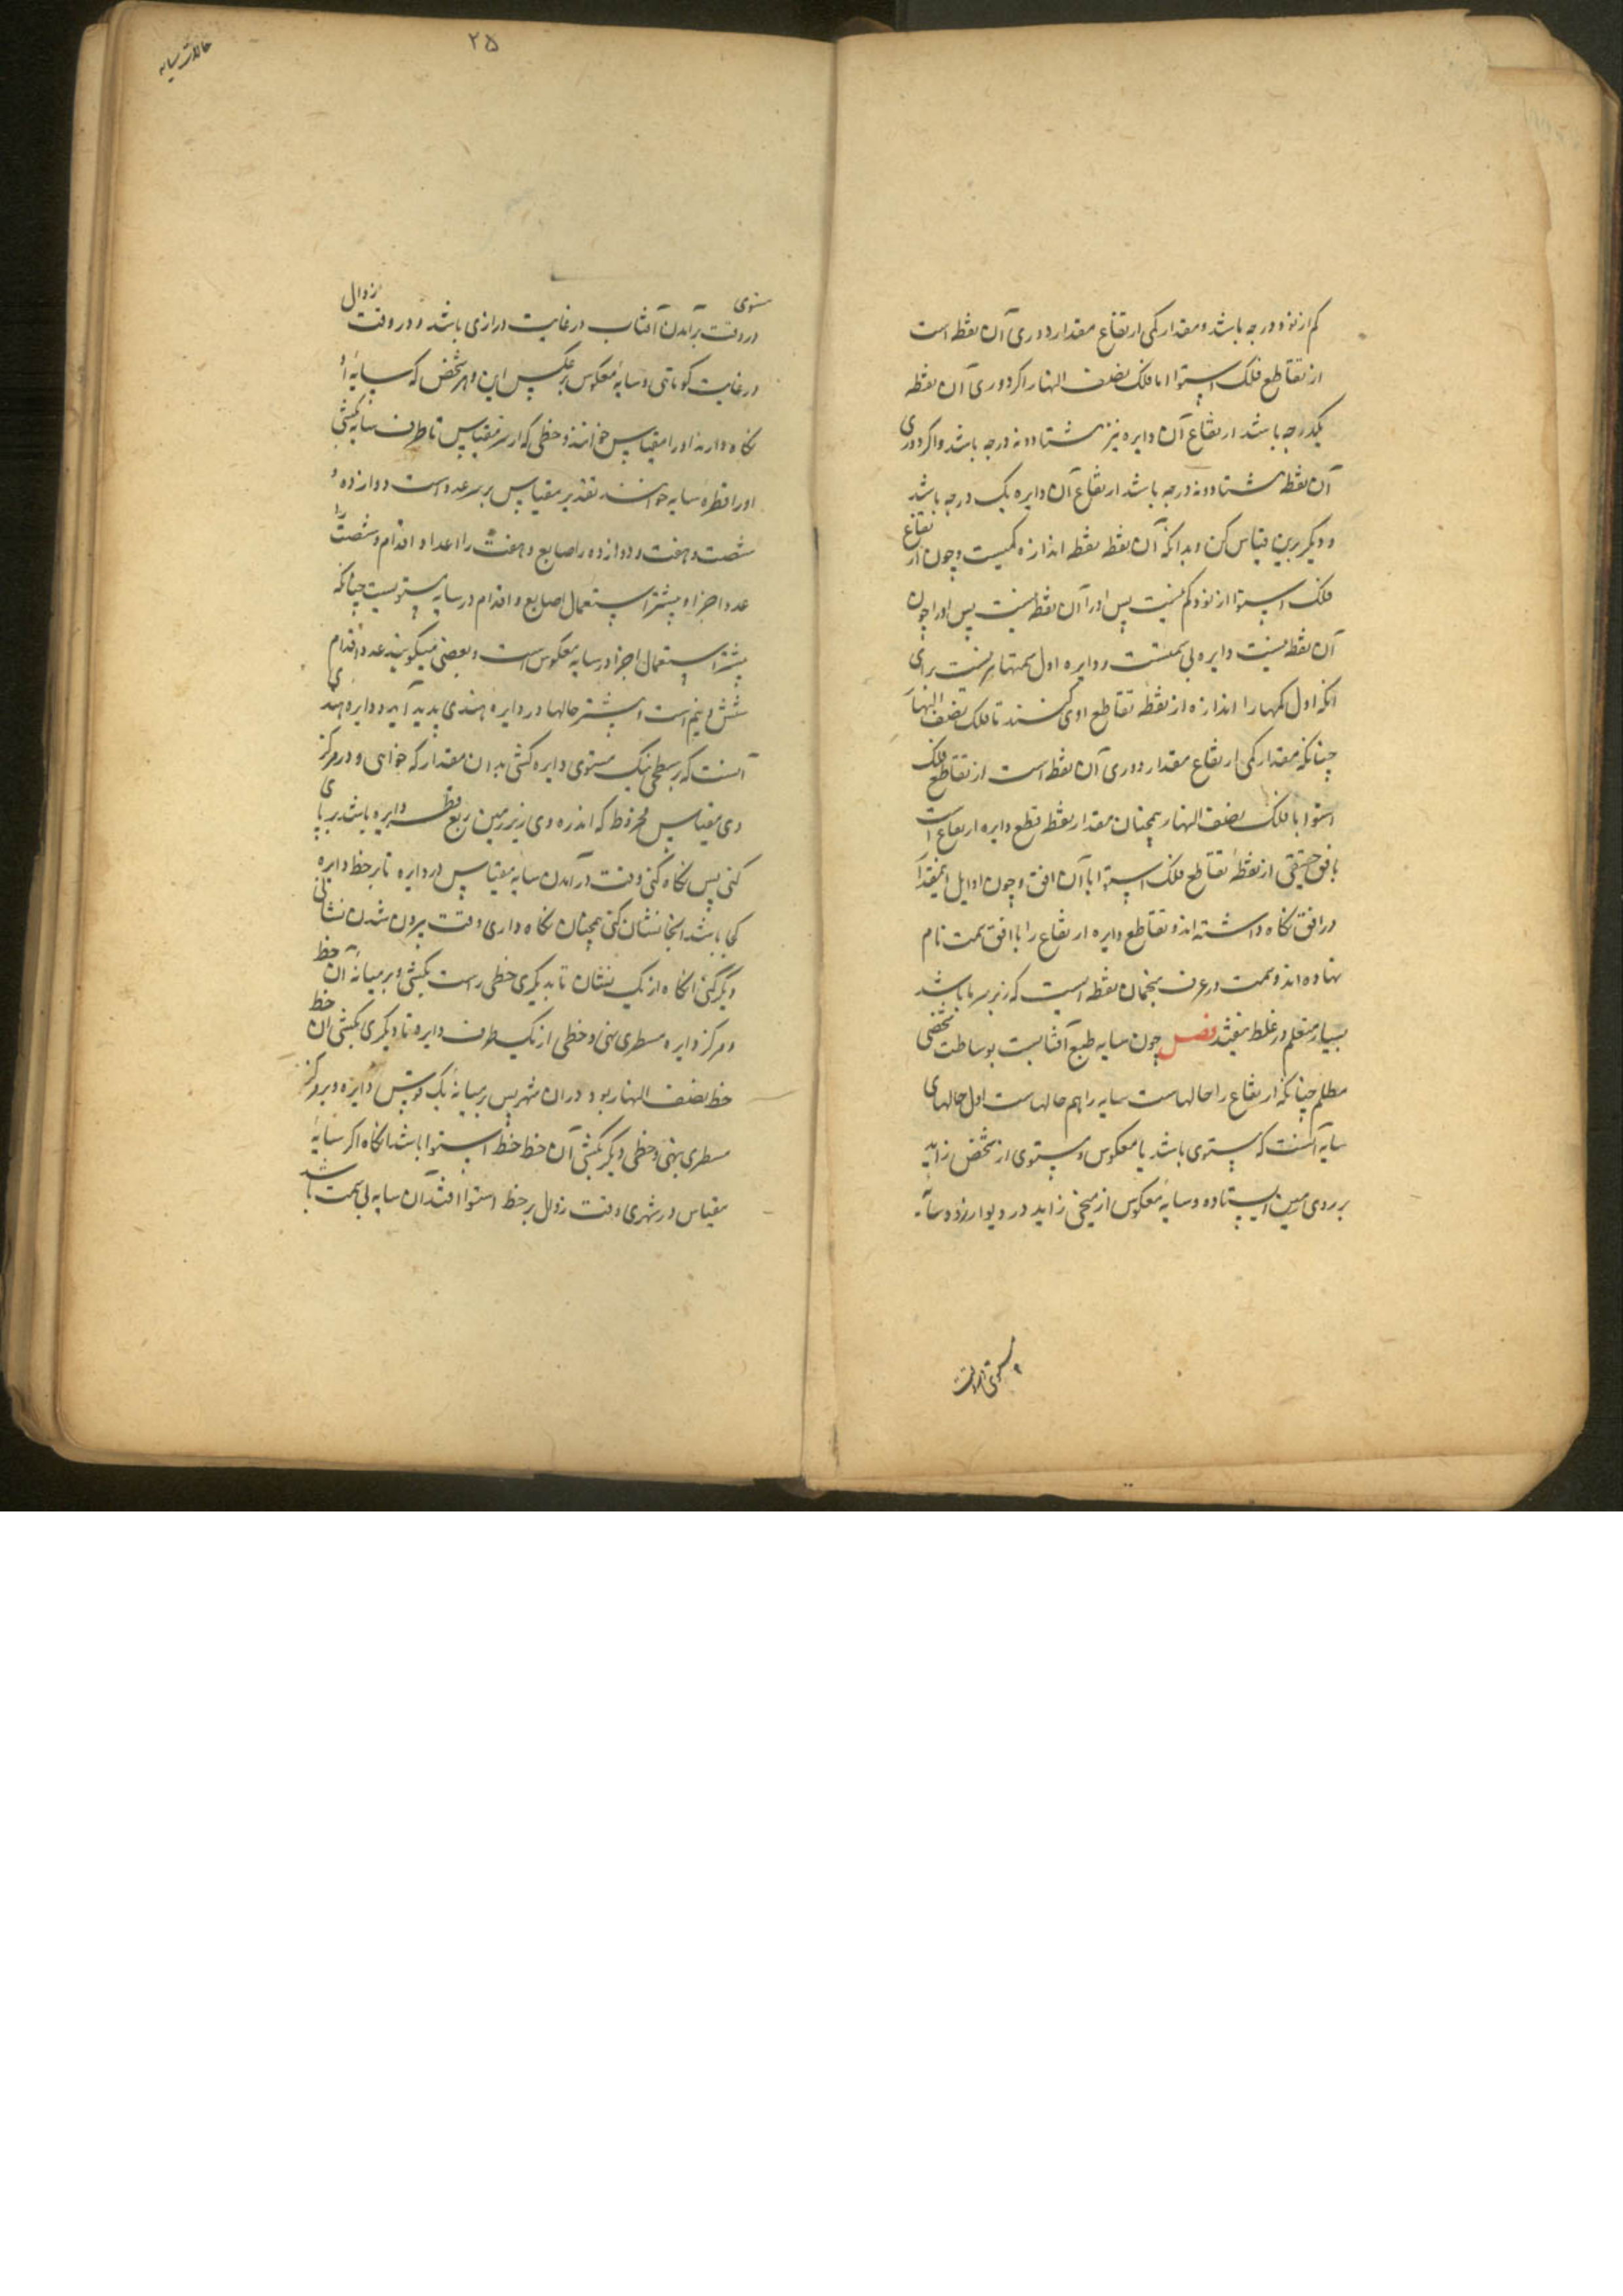 کم از نود درجه باشد و مقدار کمی ارتفاع مقدار دوری آن نقطه است
از تقاطع فلک استوا با فلک نصف النهار اگر دوری آن نقطه
یکدرجه باشد ارتفاع آن دایره نیز هشتاد و نه درجه باشد و اگر دوری
آن نقطه هشتاد و نه درجه باشد ارتفاع آن دایره یک درجه باشد
و دیگر برین قیاس کن و بدانکه آن نقطه نقطه اندازه کمیست و چون ارتفاع
فلک استوا از نود کم نیست پس او را آن نقطه نیست پس او را چون
آن نقطه نیست دایره بی سمتست و دایره اول سمتها نیست برای
آنکه اول کمیها را اندازه از نقطه تقاطع اوی کنند تا فلک نصف النهار
چنانکه مقدار کمی ارتفاع مقدار دوری آن نقطه است از تقاطع فلک
استوا با فلک نصف النهار همچنان مقدار نقطه قطع دایره ارتفاع است
با افق حقیقی از نقطه تقاطع فلک استوا با آن افق و چون اوایل اینمقدار
در افق نگاه داشته اند و تقاطع دایره ارتفاع را با افق سمت نام
نهاده اند و سمت در عرف منجمان نقطه ایست که زبر سر ما باشد
بسیار متعلم در غلط میفتد فصل چون سایه طبع آفتابست بوساطت شخصی
مظلم چنانکه ارتفاع را حالهاست سایه را هم حالهاست اول حالهای
سایه آنست که مستوی باشد یا معکوس و مستوی از شخص زاید
بر روی زمین ایستاده و سایه معکوس از میخی زاید در دیوار زده و سایه
مستوی در وقت
۲۵
حالات سایه
مستوی
در وقت برآمدن آفتاب در غایت درازی باشد و در وقت زوال
در غایت کوتاهی و سایه معکوس بر عکس این و هر شخص که سایه او
نگاه دارند او را مقیاس خوانند و خطی که از سر مقیاس تا طرف سایه کشی
او را قطر سایه خوانند تقدیر مقیاس بر سه عدد است دوازده و
شصت و هفت و دوازده را اصابع و هفت را اعداد اقدام و شصت را
عدد اجزا و بیشتر استعمال اصابع و اقدام در سایه مستویست چنانکه
بیشتر استعمال اجزا در سایه معکوس است و بعضی میگویند عدد اقدام
شش و نیم است و بیشتر حالها در دایره هندی پدید آید و دایره هندی
آنست که بر سطحی نیک مستوی دایره کشی بدان مقدار که خواهی و در مرکز
وی مقیاس مخروط که اندره وی زیر زمین ربع قطر دایره باشد بر پای
کنی پس نگاه کنی وقت درآمدن سایه مقیاس در دایره تا بر خط دایره
کجا باشد آنجا نشان کنی همچنان نگاه داری وقت بیرون شدن نشانی
دیگر کنی آنگاه از یک نشان تا بدیگری خطی راست بکشی و بر میانه آن خط
و مرکز دایره مسطری نهی و خطی از یک طرف دایره تا دیگری بکشی آن خط
خط نصف النهار بود در آن شهر پس بر میانه یک قوس دایره و بر مرکز
مسطری بنهی و خطی دیگر بکشی آن خط خط استوا باشد آنگاه اگر سایه
مقیاس در شهری وقت زوال بر خط استوا افتد آن سایه بی سمت باشد